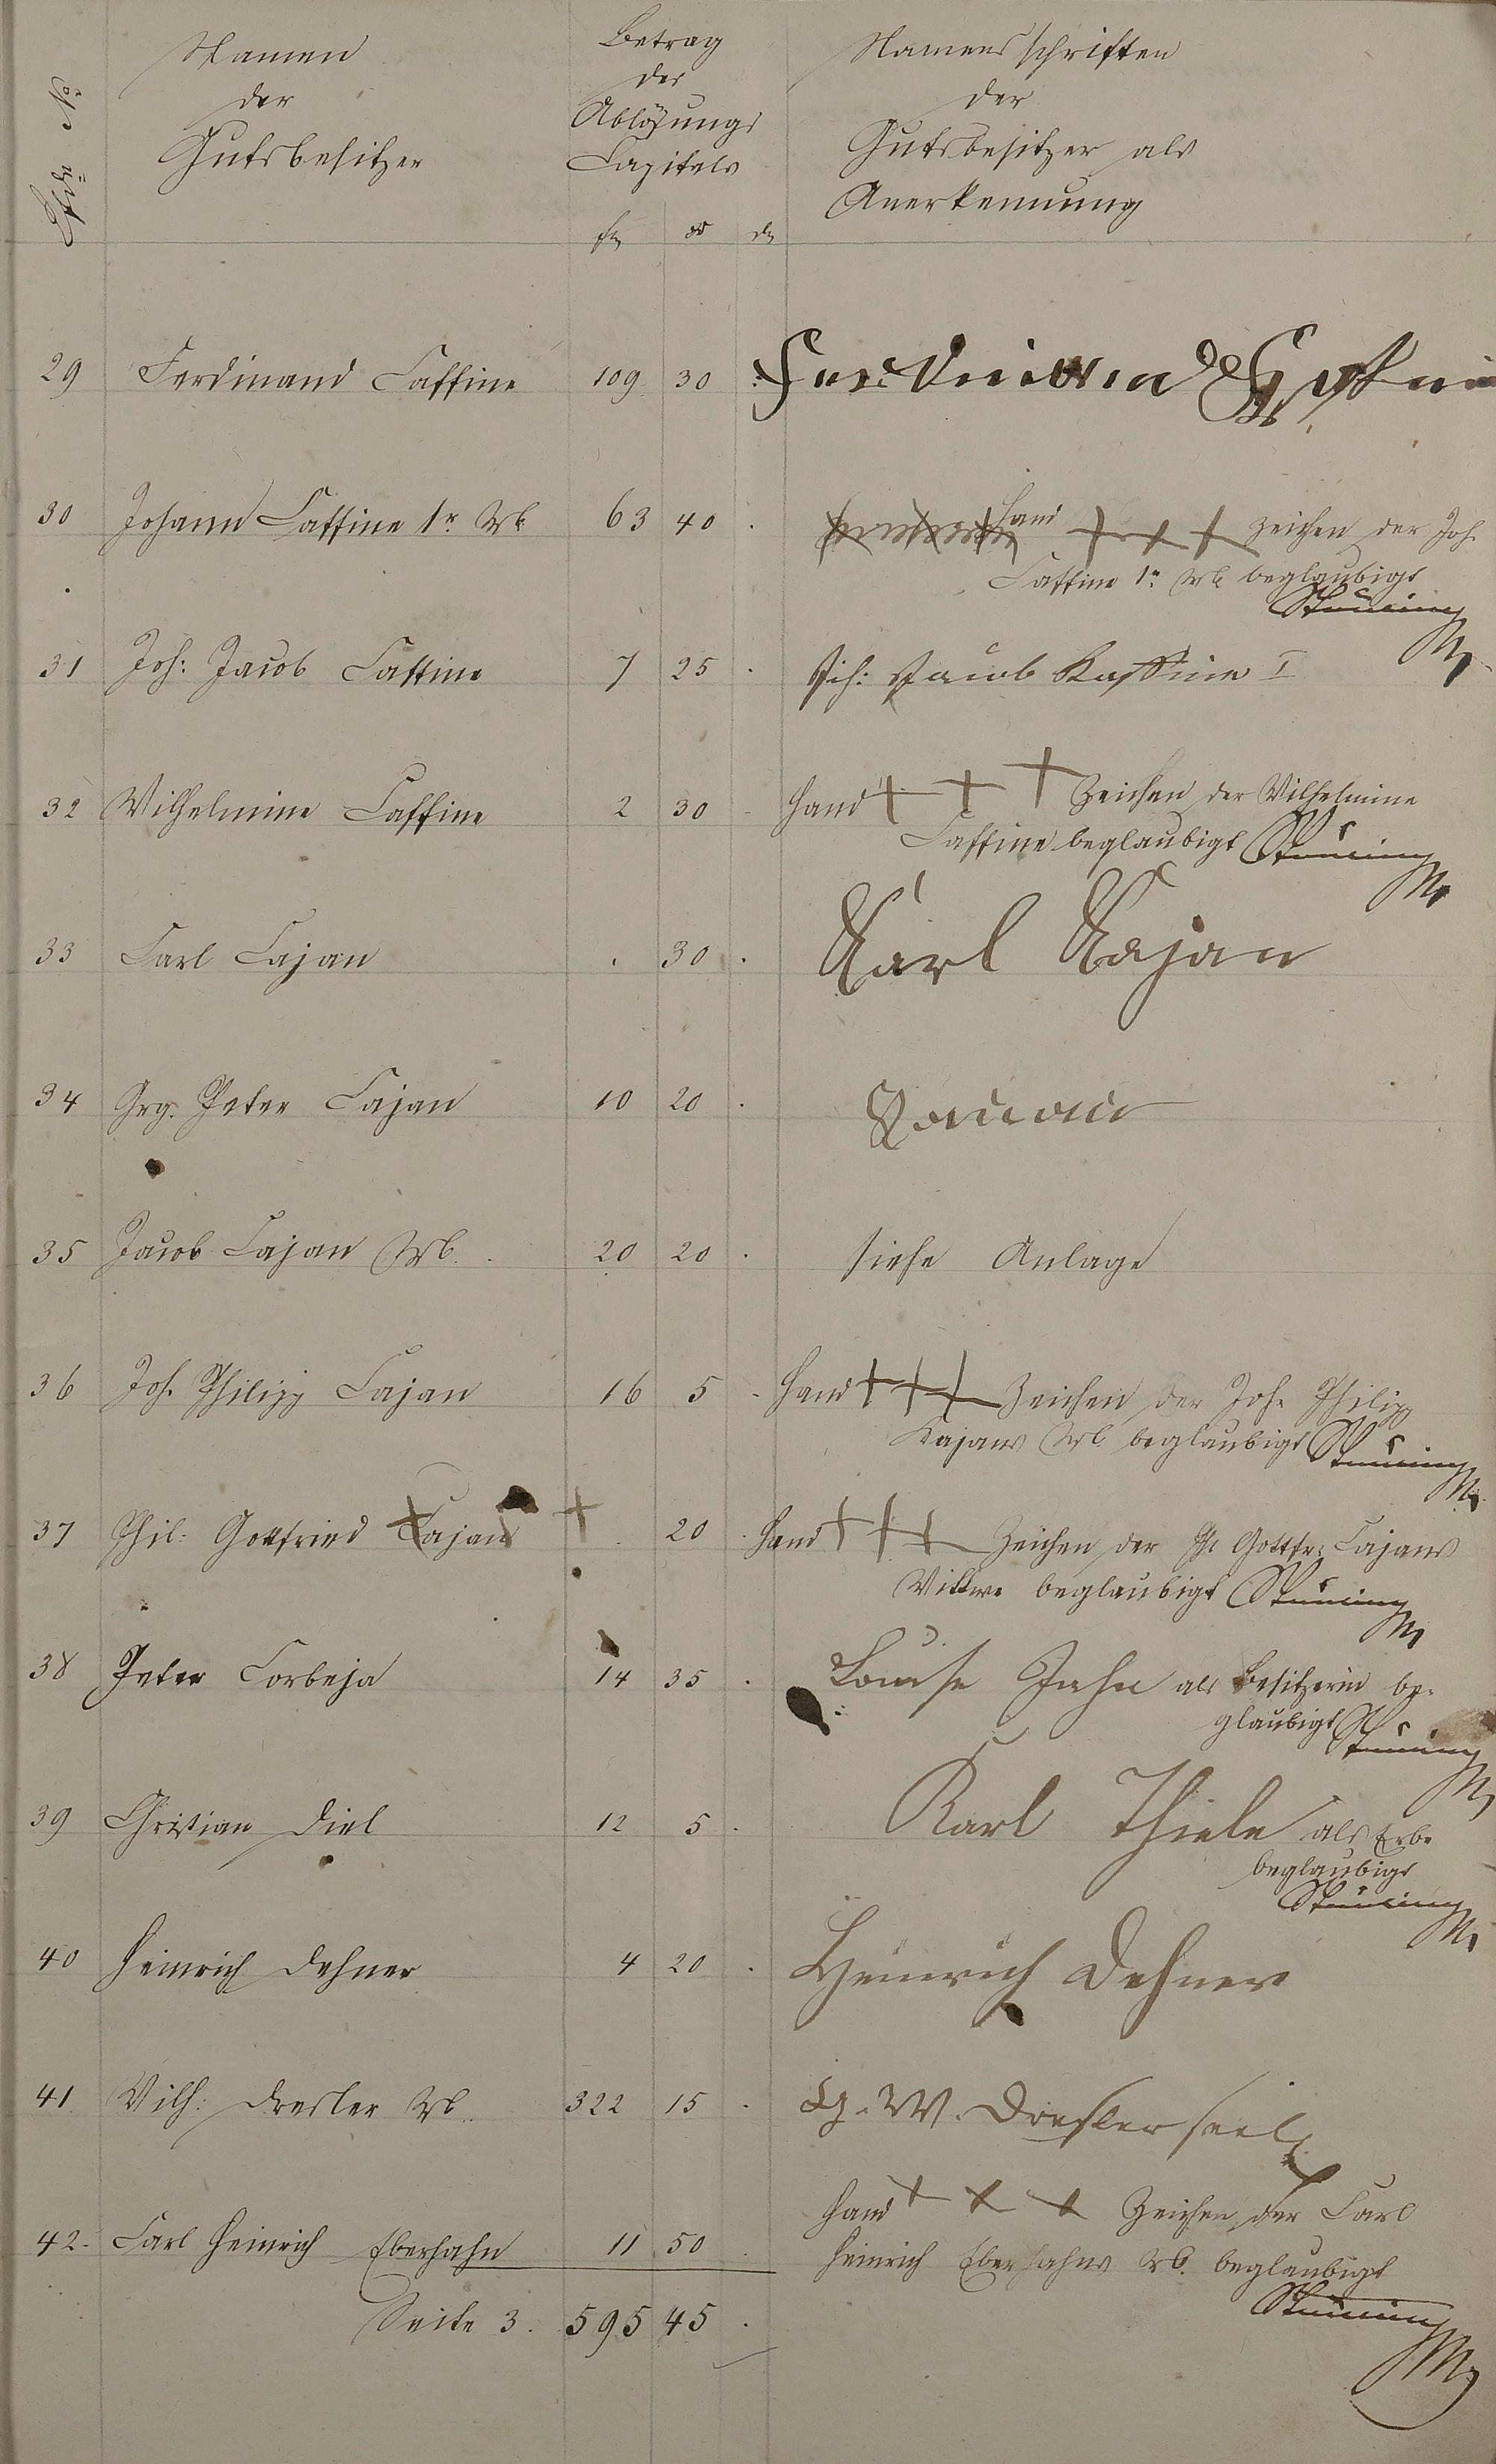 Lfd. No.
Namen
der
Gutsbesitzer
Betrag
des
Ablösungs
Capitals
fl x d
Namensschriften
der
Gutsbesitzer als
Anerkennung
29 Ferdinand Caffine 109 30 Ferdinand
30 Johann Caffine 1r Wb 63 40 . Hand +++ zeichen der Joh.
Caffine 1r Wb beglaubigt
31 Joh: Jacob Caffine 7 25 . Joh: Jacob Kaffine I
32 Wilhelmine Caffine 2 30 Hand + + + Zeichen der Wilhelmine
Caffine beglaubigt
33 Carl Cajan . 30 . Karl Kajan
34 Grg. Peter Cajan 10 20 .
35 Jacob Cajan Wb. 20 20 . siehe Anlage
36 Joh. Philipp Cajan 16 5 Hand +++ Zeichen der Joh. Philipp
Kajans Wb. beglaubigt
37 Phil: Gottfried Cajan . 20 . Hand +++ Zeichen der Ph Gottfr: Cajans
Wittwe beglaubigt
38 Peter Corbeja 14 35 . Louise Jahn als Besitzerin be-
glaubigt
39 Christian Diel 12 5 . Karl Thiele als Erbe
beglaubigt
40 Heinrich Dehner 4 20 . Heinrich Dehner
41 Wilh: Dresler Wb. 322 15 . W. Dresler seel
42. Carl Heinrich Eberhahn 11 50 Hand + + + Zeichen der Carl
Heinrich Eberhahns Wb. beglaubigt
Seite 3. 595 45 .